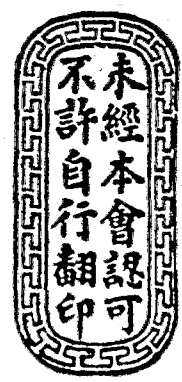 未經本會認可
不許自行翻印